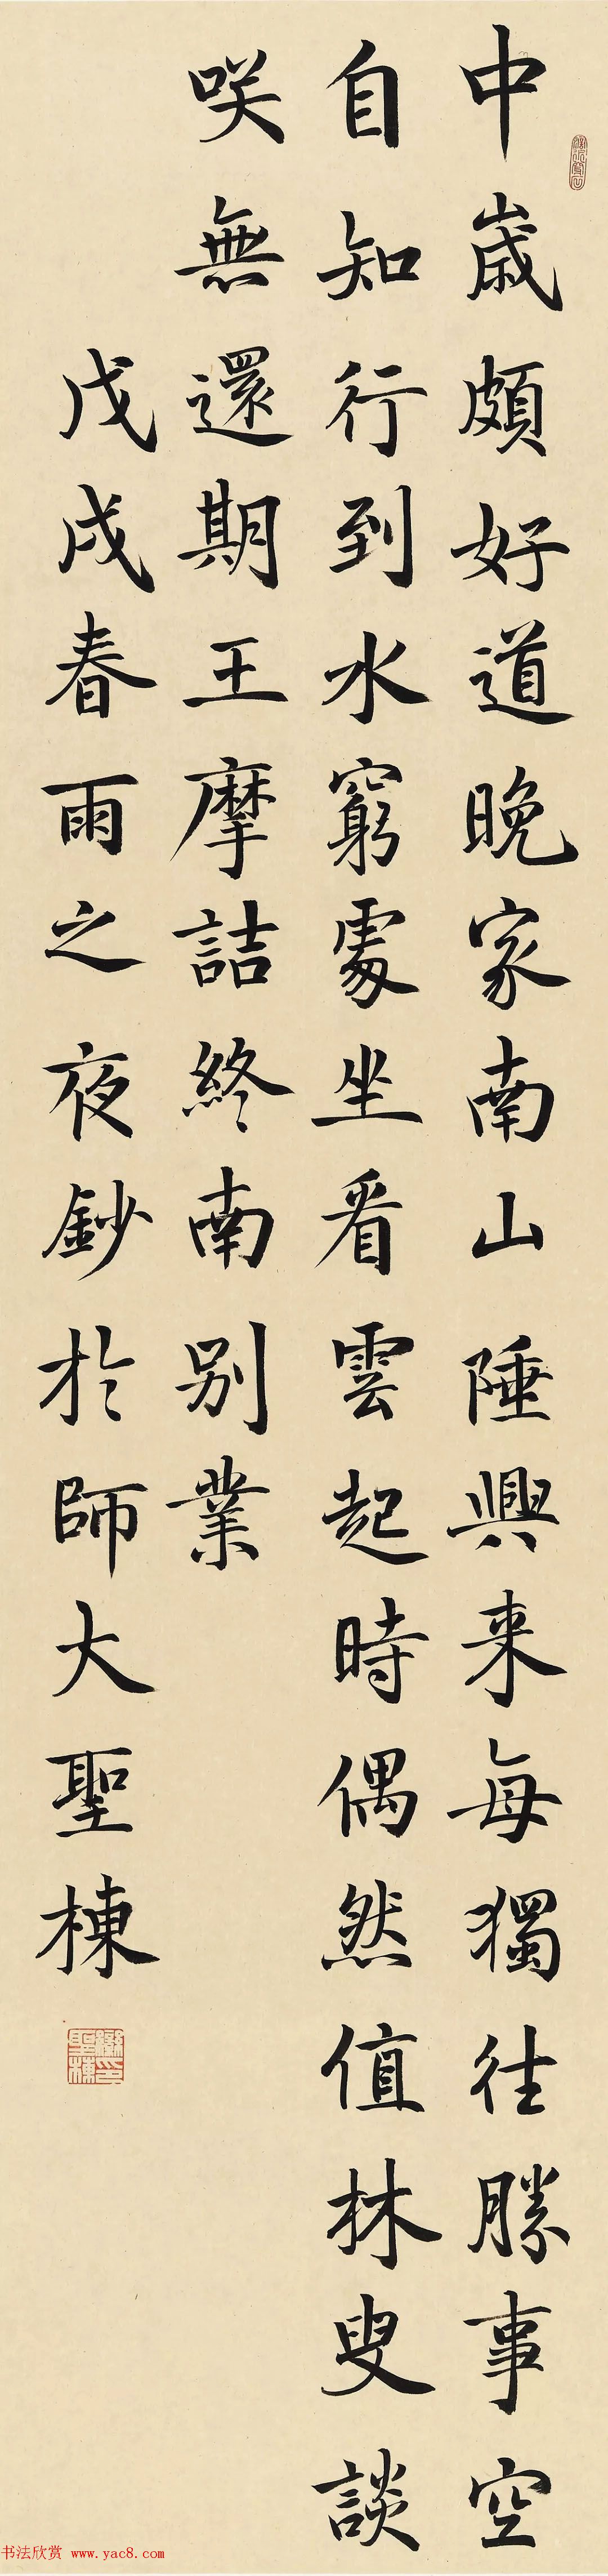 中歳頗好道晚家南山陲興来每獨往勝事空
自知行到水窮處坐看雲起時偶然值林叟談
咲無還期王摩詰終南别業
戊戌春雨之夜鈔於師大聖棟
书法欣赏 www.yac8.com